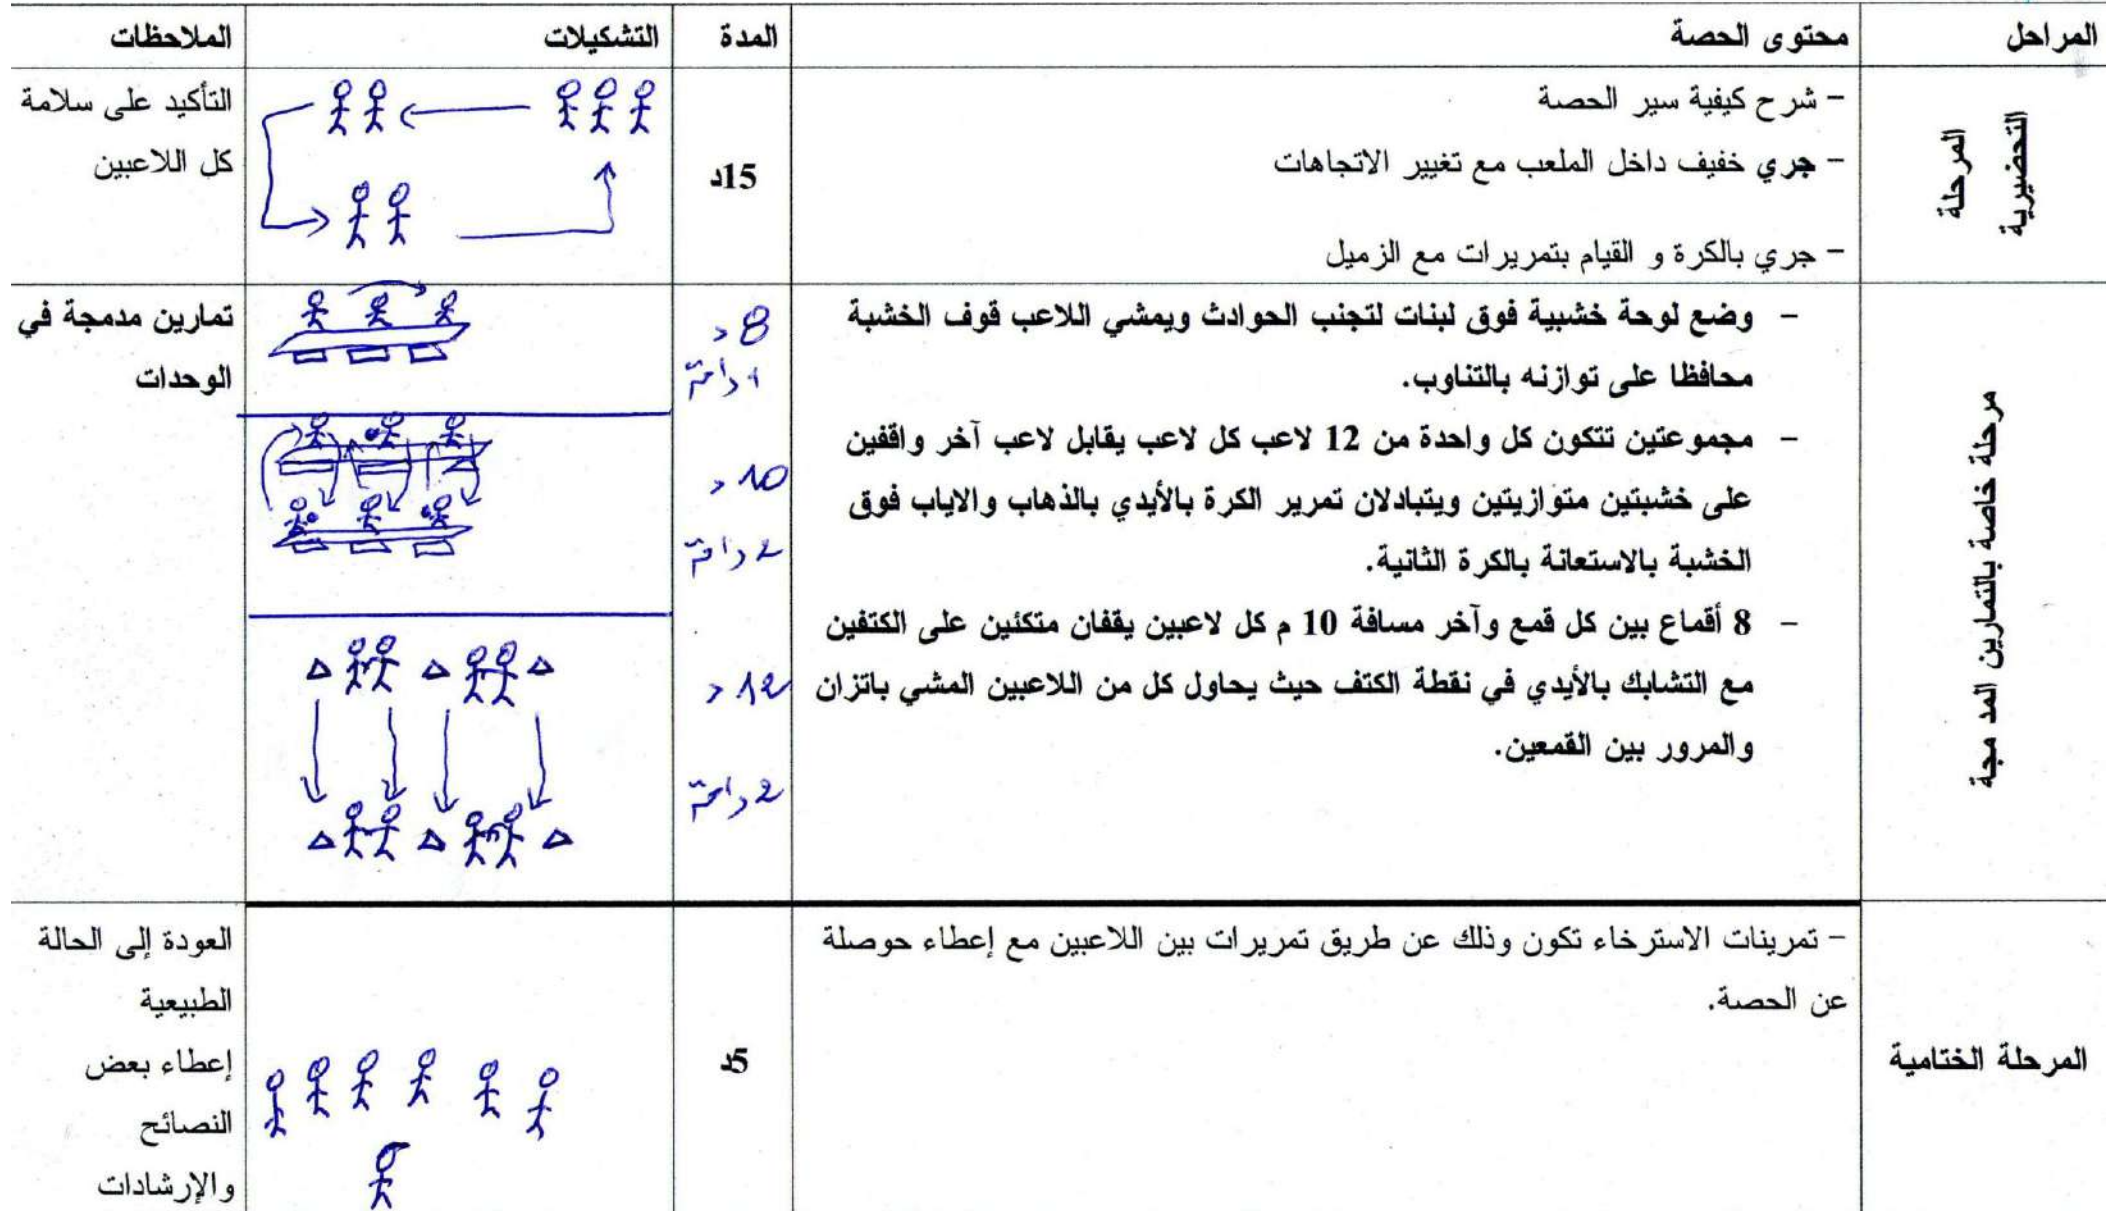 المراحل
محتوى الحصة
المدة
التشكيلات
الملاحظات
المرحلة
التحضيرية
– شرح كيفية سير الحصة
– جري خفيف داخل الملعب مع تغيير الاتجاهات
– جري بالكرة و القيام بتمريرات مع الزميل
15د
التأكيد على سلامة
كل اللاعبين
مرحلة خاصة بالتمارين المد مجة
– وضع لوحة خشبية فوق لبنات لتجنب الحوادث ويمشي اللاعب قوف الخشبة
محافظا على توازنه بالتناوب.
– مجموعتين تتكون كل واحدة من 12 لاعب كل لاعب يقابل لاعب آخر واقفين
على خشبتين متوازيتين ويتبادلان تمرير الكرة بالأيدي بالذهاب والاياب فوق
الخشبة بالاستعانة بالكرة الثانية.
– 8 أقماع بين كل قمع وآخر مسافة 10 م كل لاعبين يقفان متكئين على الكتفين
مع التشابك بالأيدي في نقطة الكتف حيث يحاول كل من اللاعبين المشي باتزان
والمرور بين القمعين.
8 د
راحة
10 د
2 د راحة
12 د
2 د راحة
تمارين مدمجة في
الوحدات
المرحلة الختامية
– تمرينات الاسترخاء تكون وذلك عن طريق تمريرات بين اللاعبين مع إعطاء حوصلة
عن الحصة.
5د
العودة إلى الحالة
الطبيعية
إعطاء بعض
النصائح
والإرشادات